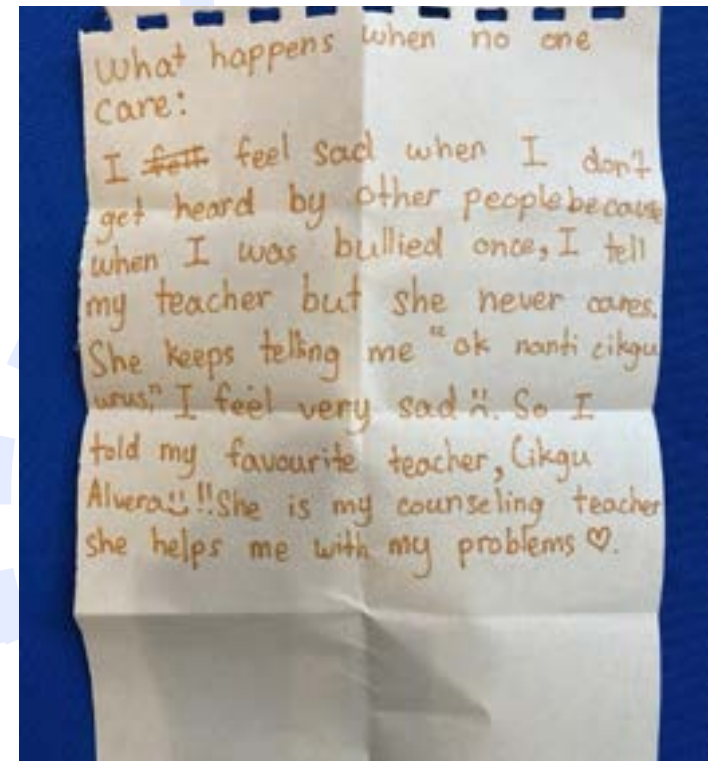 What happens when no one
care:
I felt feel sad when I don't
get heard by other people because
when I was bullied once, I tell
my teacher but she never cares.
She keeps telling me "ok nanti cikgu
urus," I feel very sad :(. So I
told my favourite teacher, Cikgu
Alvera :) !! She is my counseling teacher
she helps me with my problems ♡.